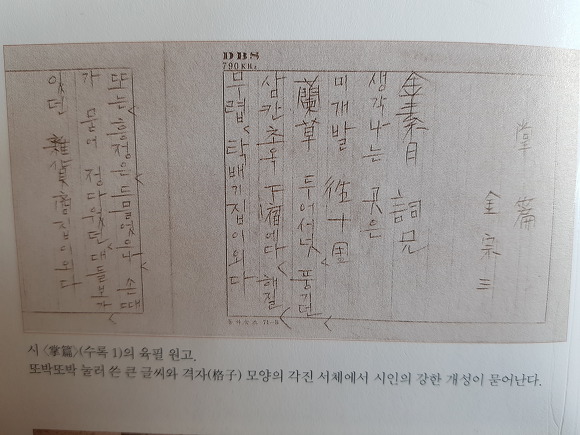 DBS
790 KHz
掌篇
金宗三
金素月 詞兄
생각나는 곳은
미개발 往十里
蘭草 두어서넛 풍기던
삼칸초옥 下宿에다 해질
무렵 탁배기집이외다
또는 흥정은 드믈었으나 손때
가 묻어 정다웠던 대들보가
있던 雜貨商집이외다
시 〈掌篇〉(수록 1)의 육필 원고.
또박또박 눌러 쓴 큰 글씨와 격자(格子) 모양의 각진 서체에서 시인의 강한 개성이 묻어난다.